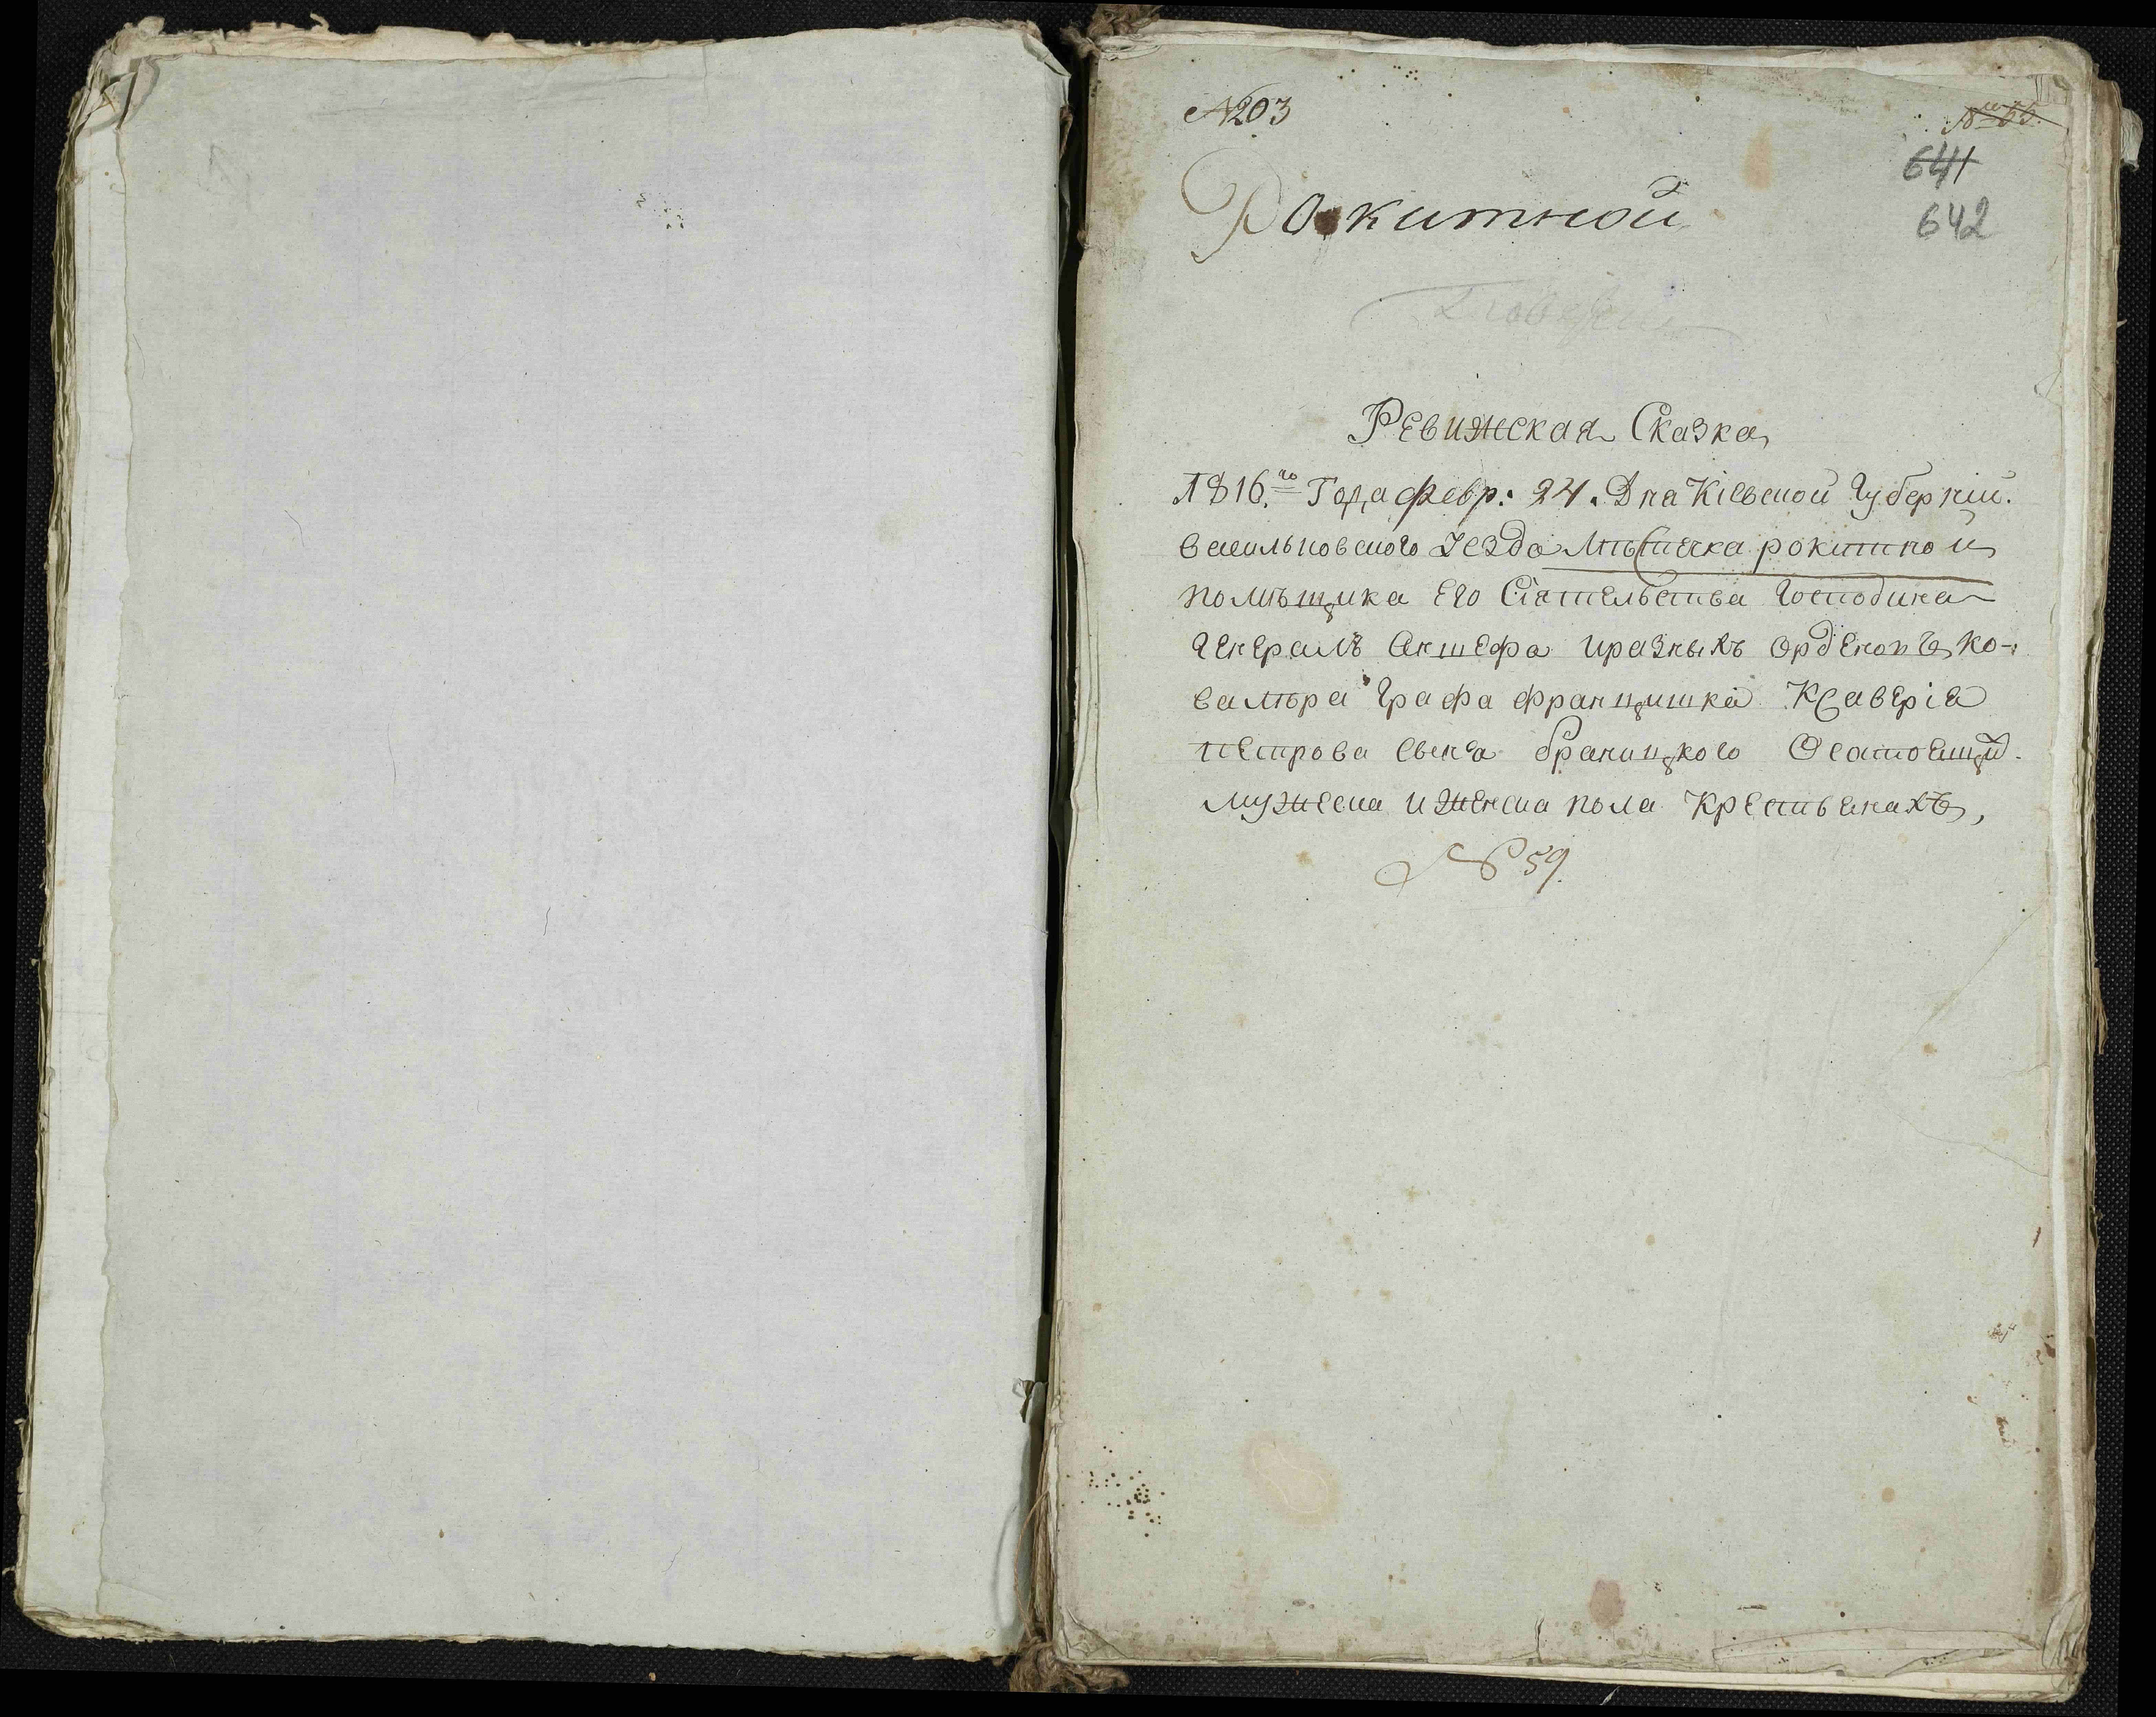 №203
641
642
Рокитной
Ревижская Сказка
1816.го Года февр: 24. Дня Кіевской Губерніи.
васильковского Уезда Мѣстечка рокитной
помѣщика Его Сіятельства Господина
Генералъ Аншефа иразныхъ Орденовъ Ко-
валѣра Графа францишка Ксаверіа
петрова сына браницкого Осатоящи.
мужеска иженска пола Крестьянахъ,
№ 59